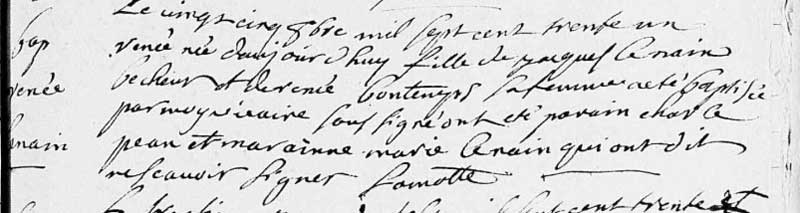 Le cingt cinq 8bre mil sept cent trente un
bap
renée née daujourdhuy fille de jacques lenain
renée
becheur et de renée bontemps sa femme a eté baptisée
par moy vicaire sous signé ont eté parain charle
lenain
jean et marainne marie lenain qui ont dit
ne scavoir signer Lamotte
cent trente et